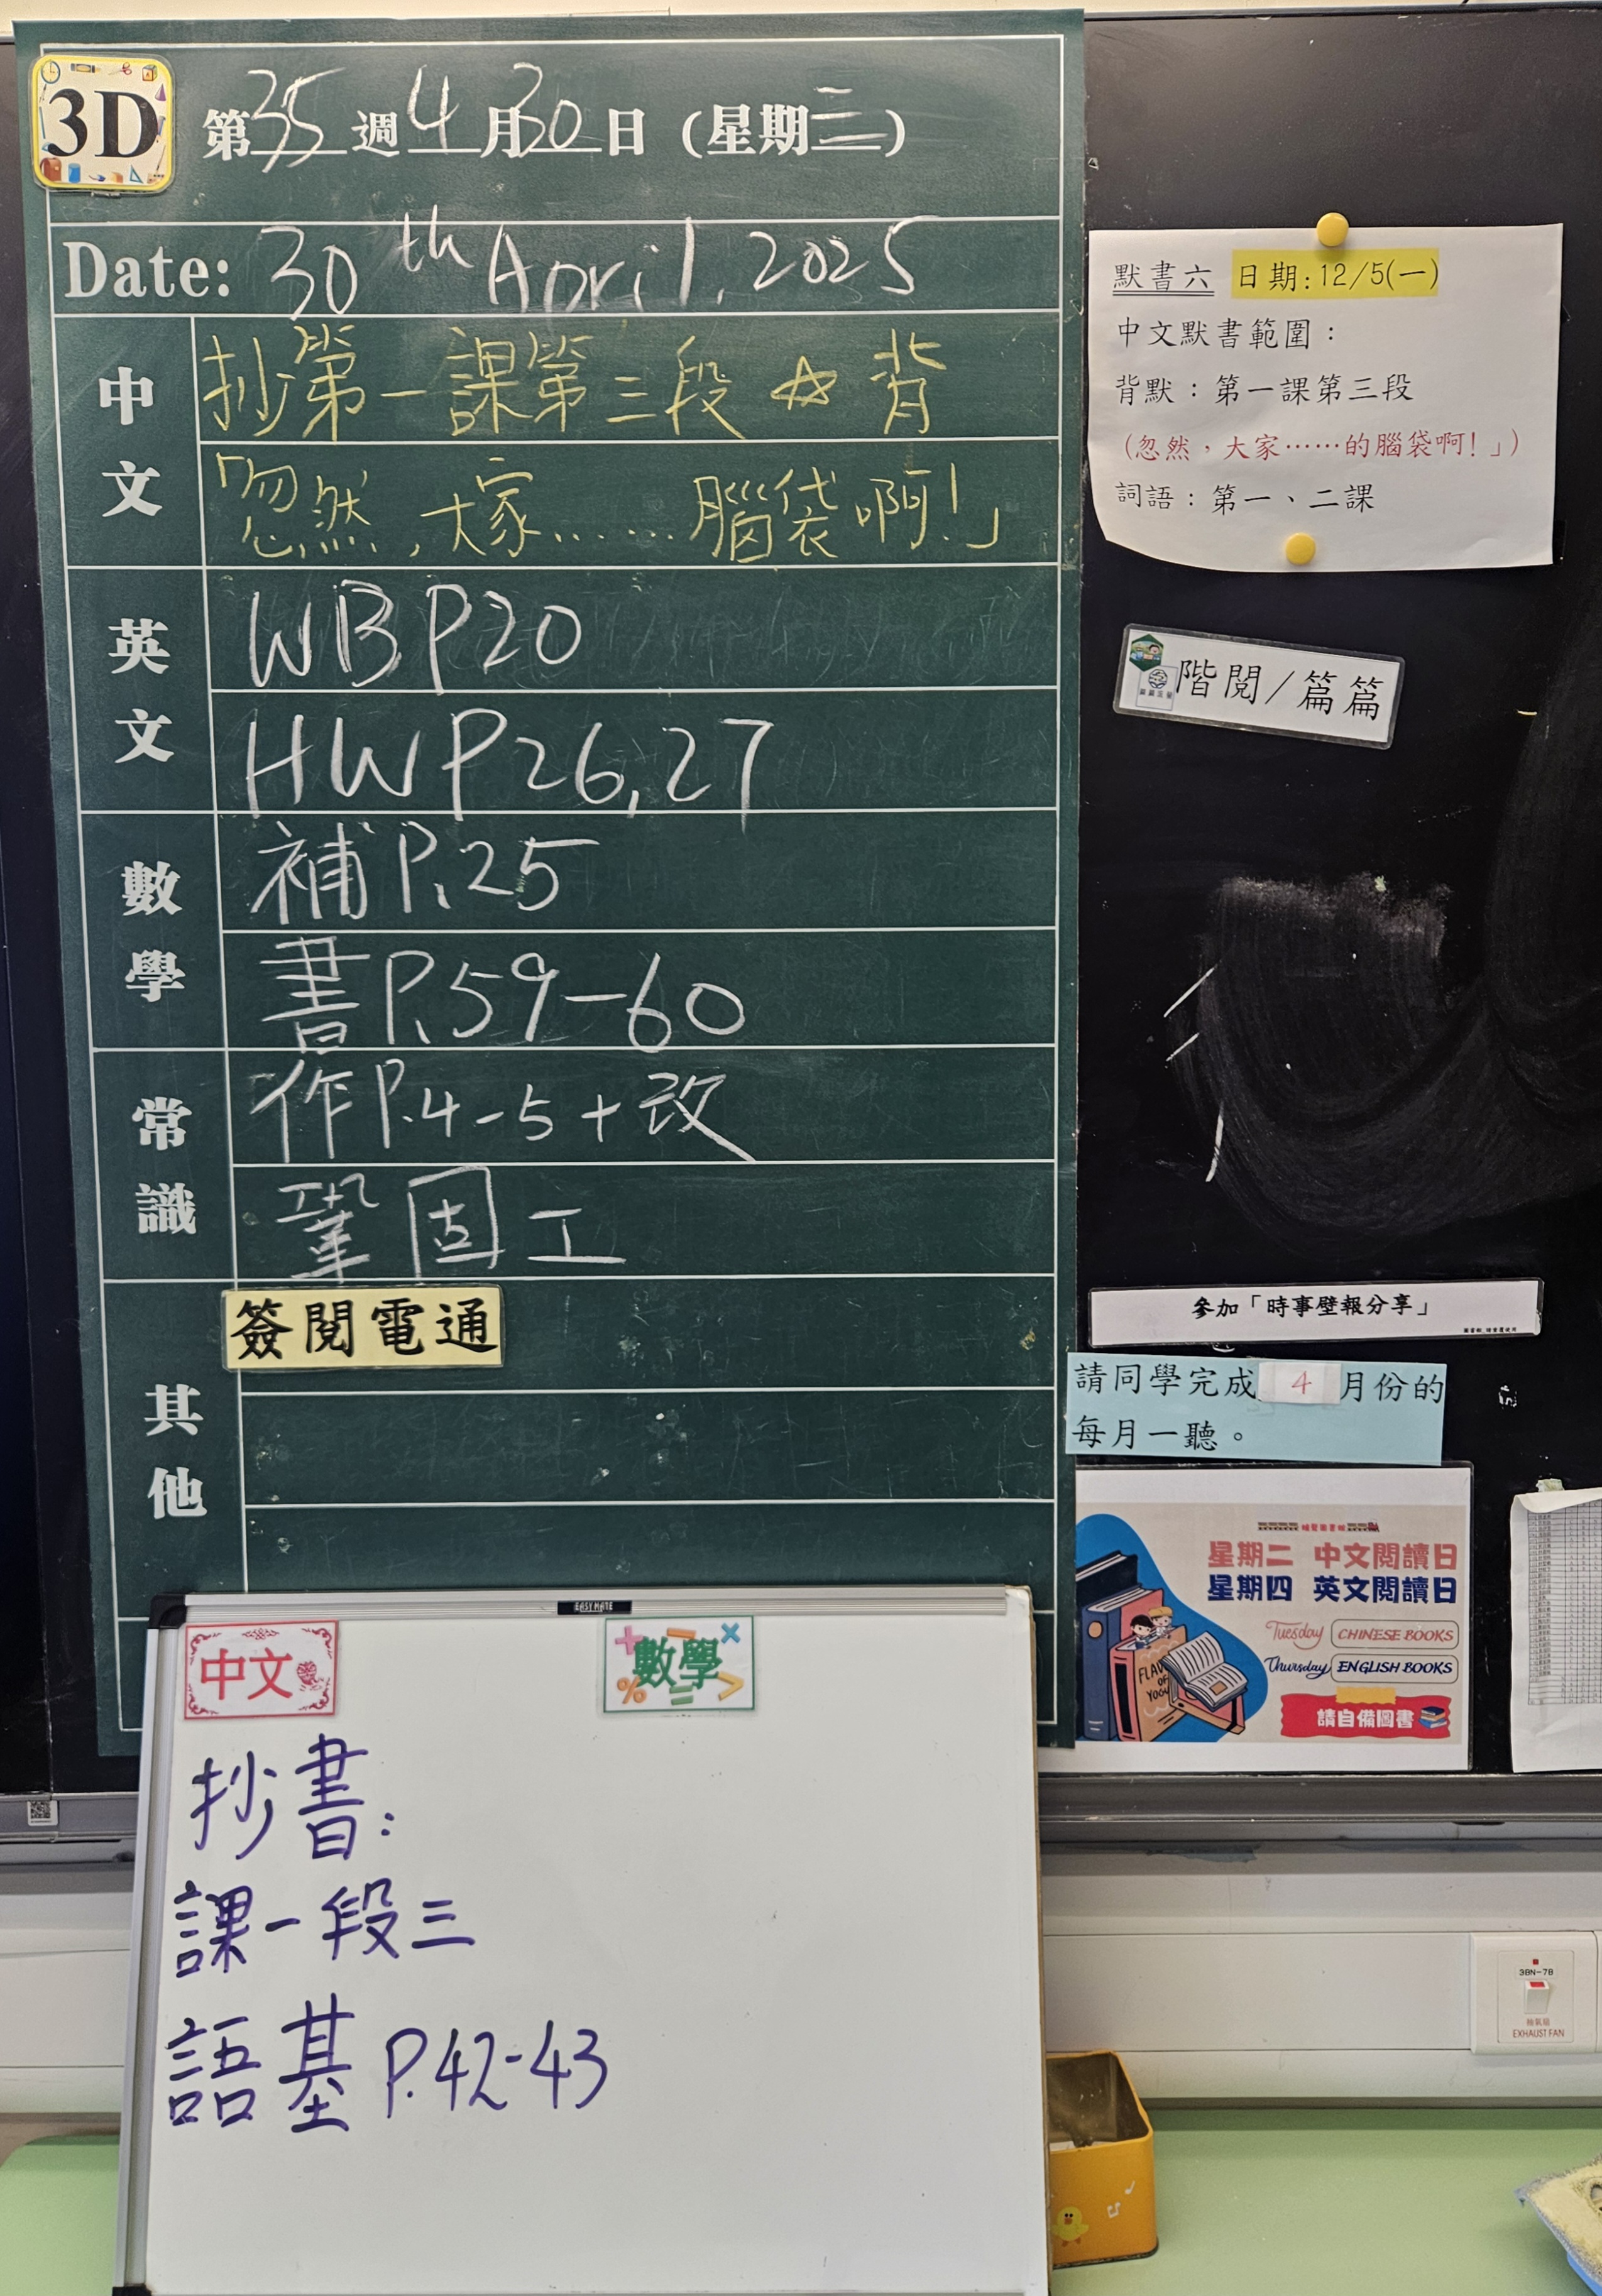 3D
第35週4月30日(星期三)
Date: 30th April, 2025
中文
抄第一課第三段☆背
「忽然,大家……腦袋啊!」
英文
WB P20
HW P26,27
數學
補P.25
書P.59-60
常識
作P.4-5+改
鞏固工
其他
簽閱電通
默書六 日期:12/5(一)
中文默書範圍:
背默:第一課第三段
(忽然,大家……的腦袋啊!」)
詞語:第一、二課
階閱/篇篇
參加「時事壁報分享」
請同學完成4月份的
每月一聽。
星期二 中文閱讀日
星期四 英文閱讀日
Tuesday CHINESE BOOKS
Thursday ENGLISH BOOKS
請自備圖書
EASY MATE
中文
數學
抄書:
課一段三
語基 P.42-43
38N-7B
抽氣扇
EXHAUST FAN